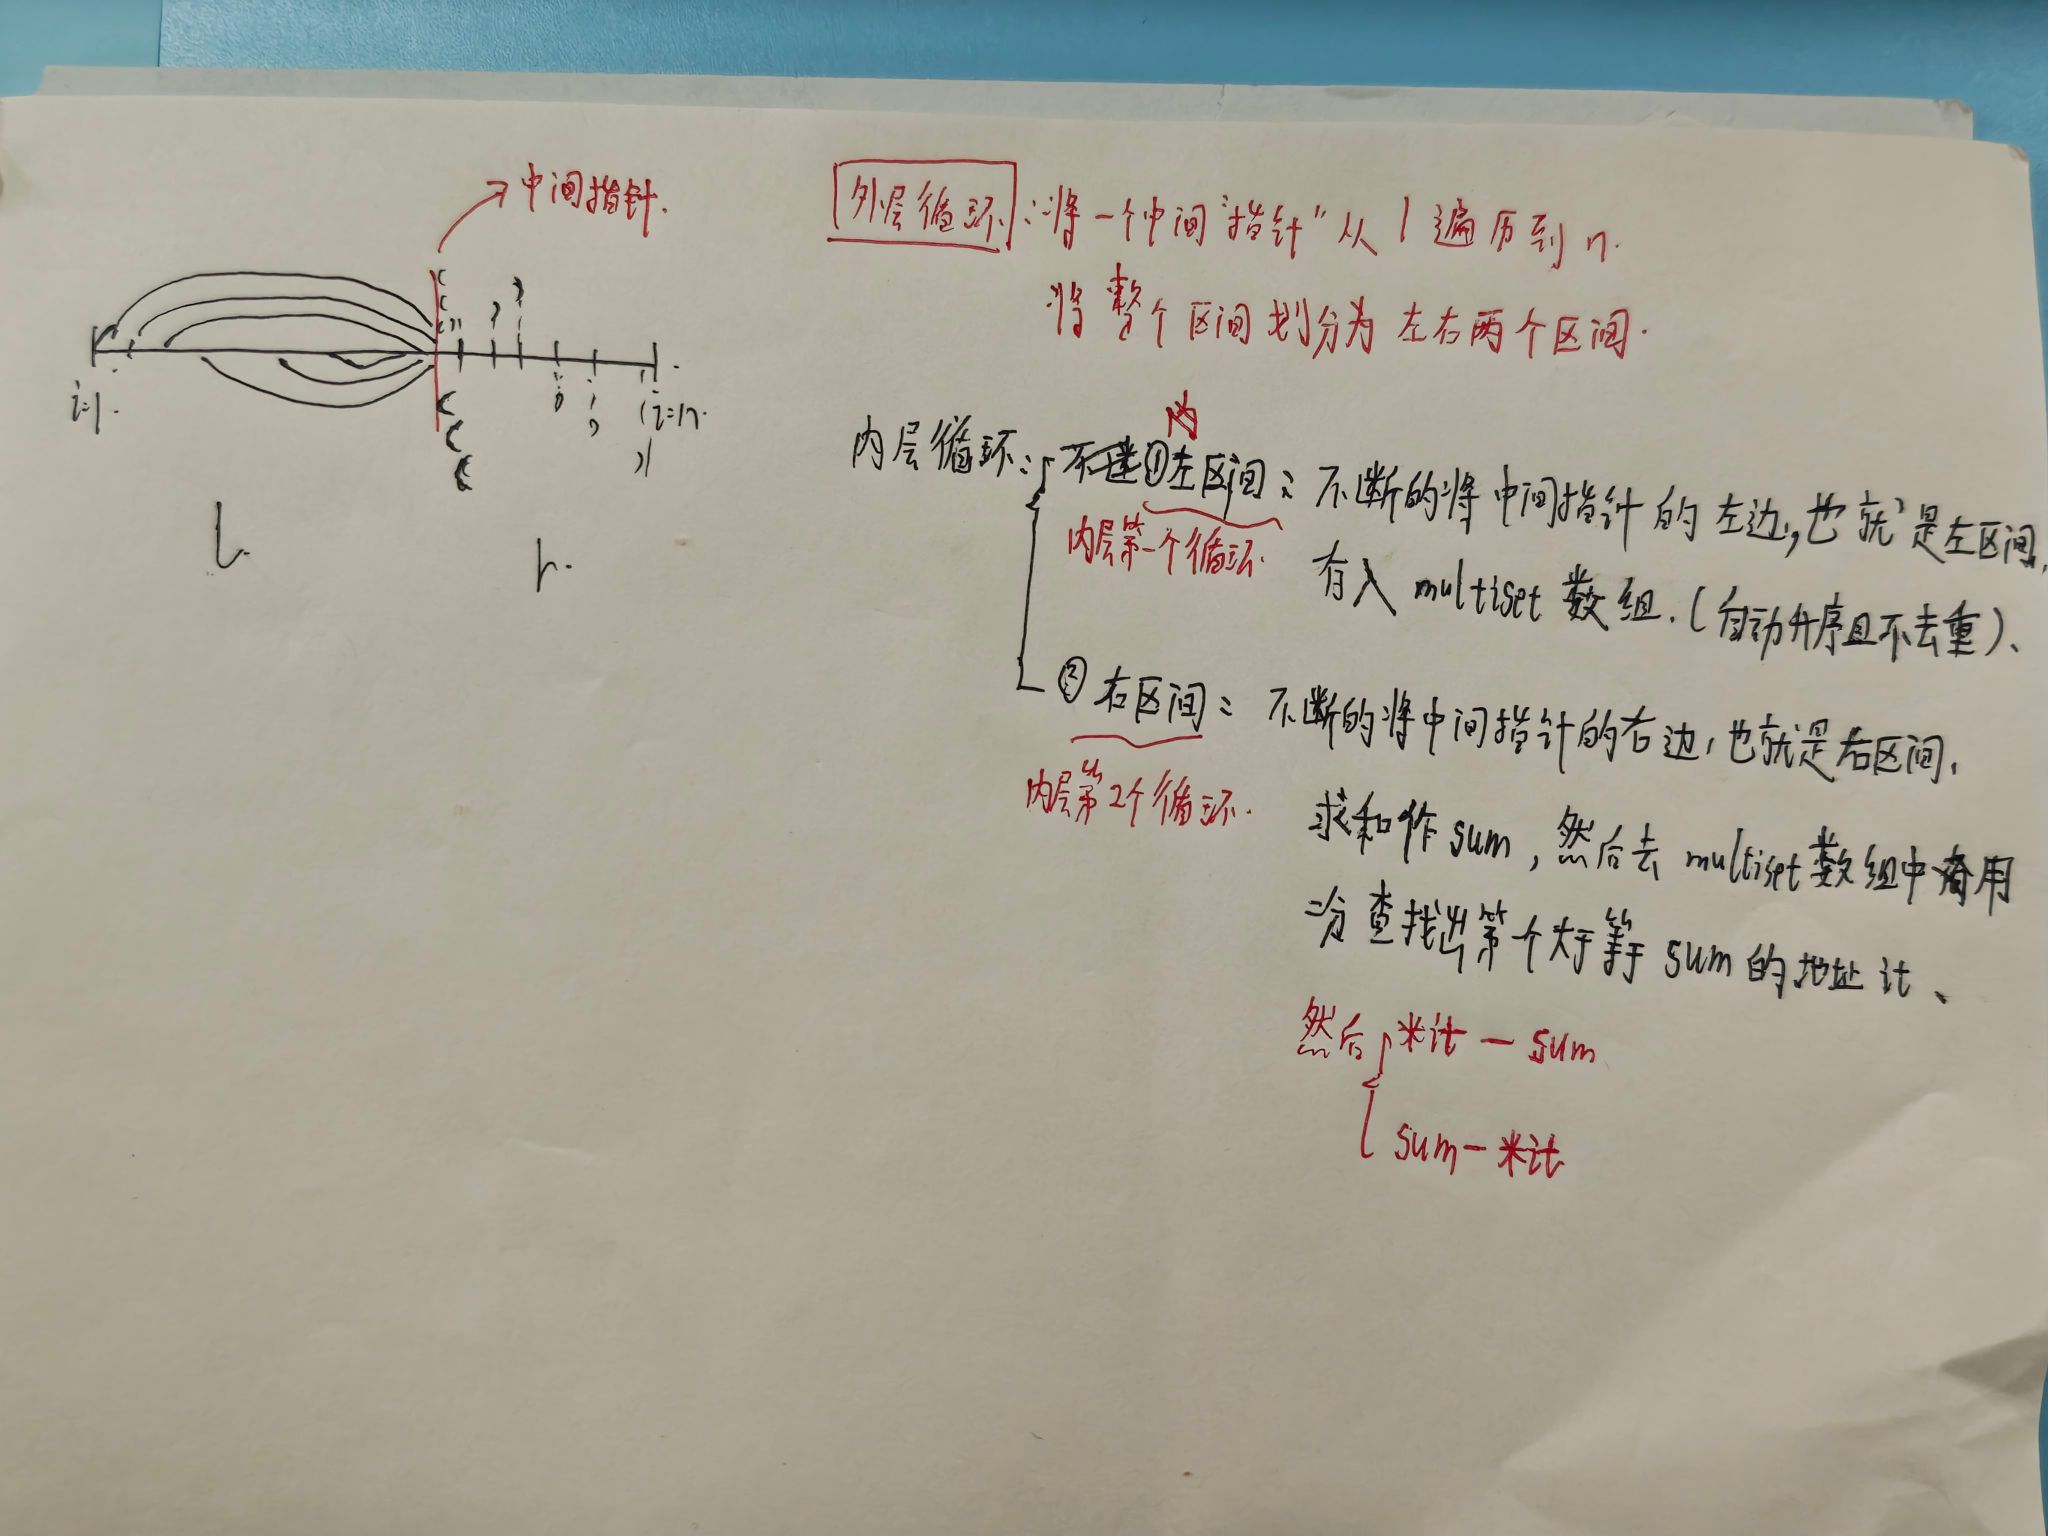 中间指针.
i=1.
i=n.
l.
r.
外层循环：将一个中间"指针"从1遍历到n.
将整个区间划分为左右两个区间.
内层循环：
内
①左区间：不断的将中间指针的左边，也就是左区间，
内层第一个循环.
存入multiset数组.(自动升序且不去重)、
②右区间：不断的将中间指针的右边，也就是右区间，
内层第2个循环.
求和作sum，然后去multiset数组中用
二分查找出第个大于等于sum的地址it、
然后 *it-sum
sum-*it